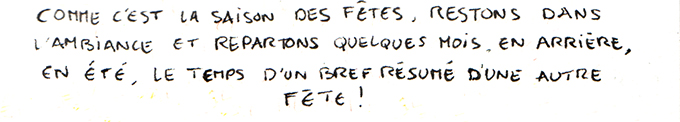 COMME C'EST LA SAISON DES FÊTES, RESTONS DANS
L'AMBIANCE ET REPARTONS QUELQUES MOIS, EN ARRIÈRE,
EN ÉTÉ, LE TEMPS D'UN BREF RÉSUMÉ D'UNE AUTRE
FÊTE !